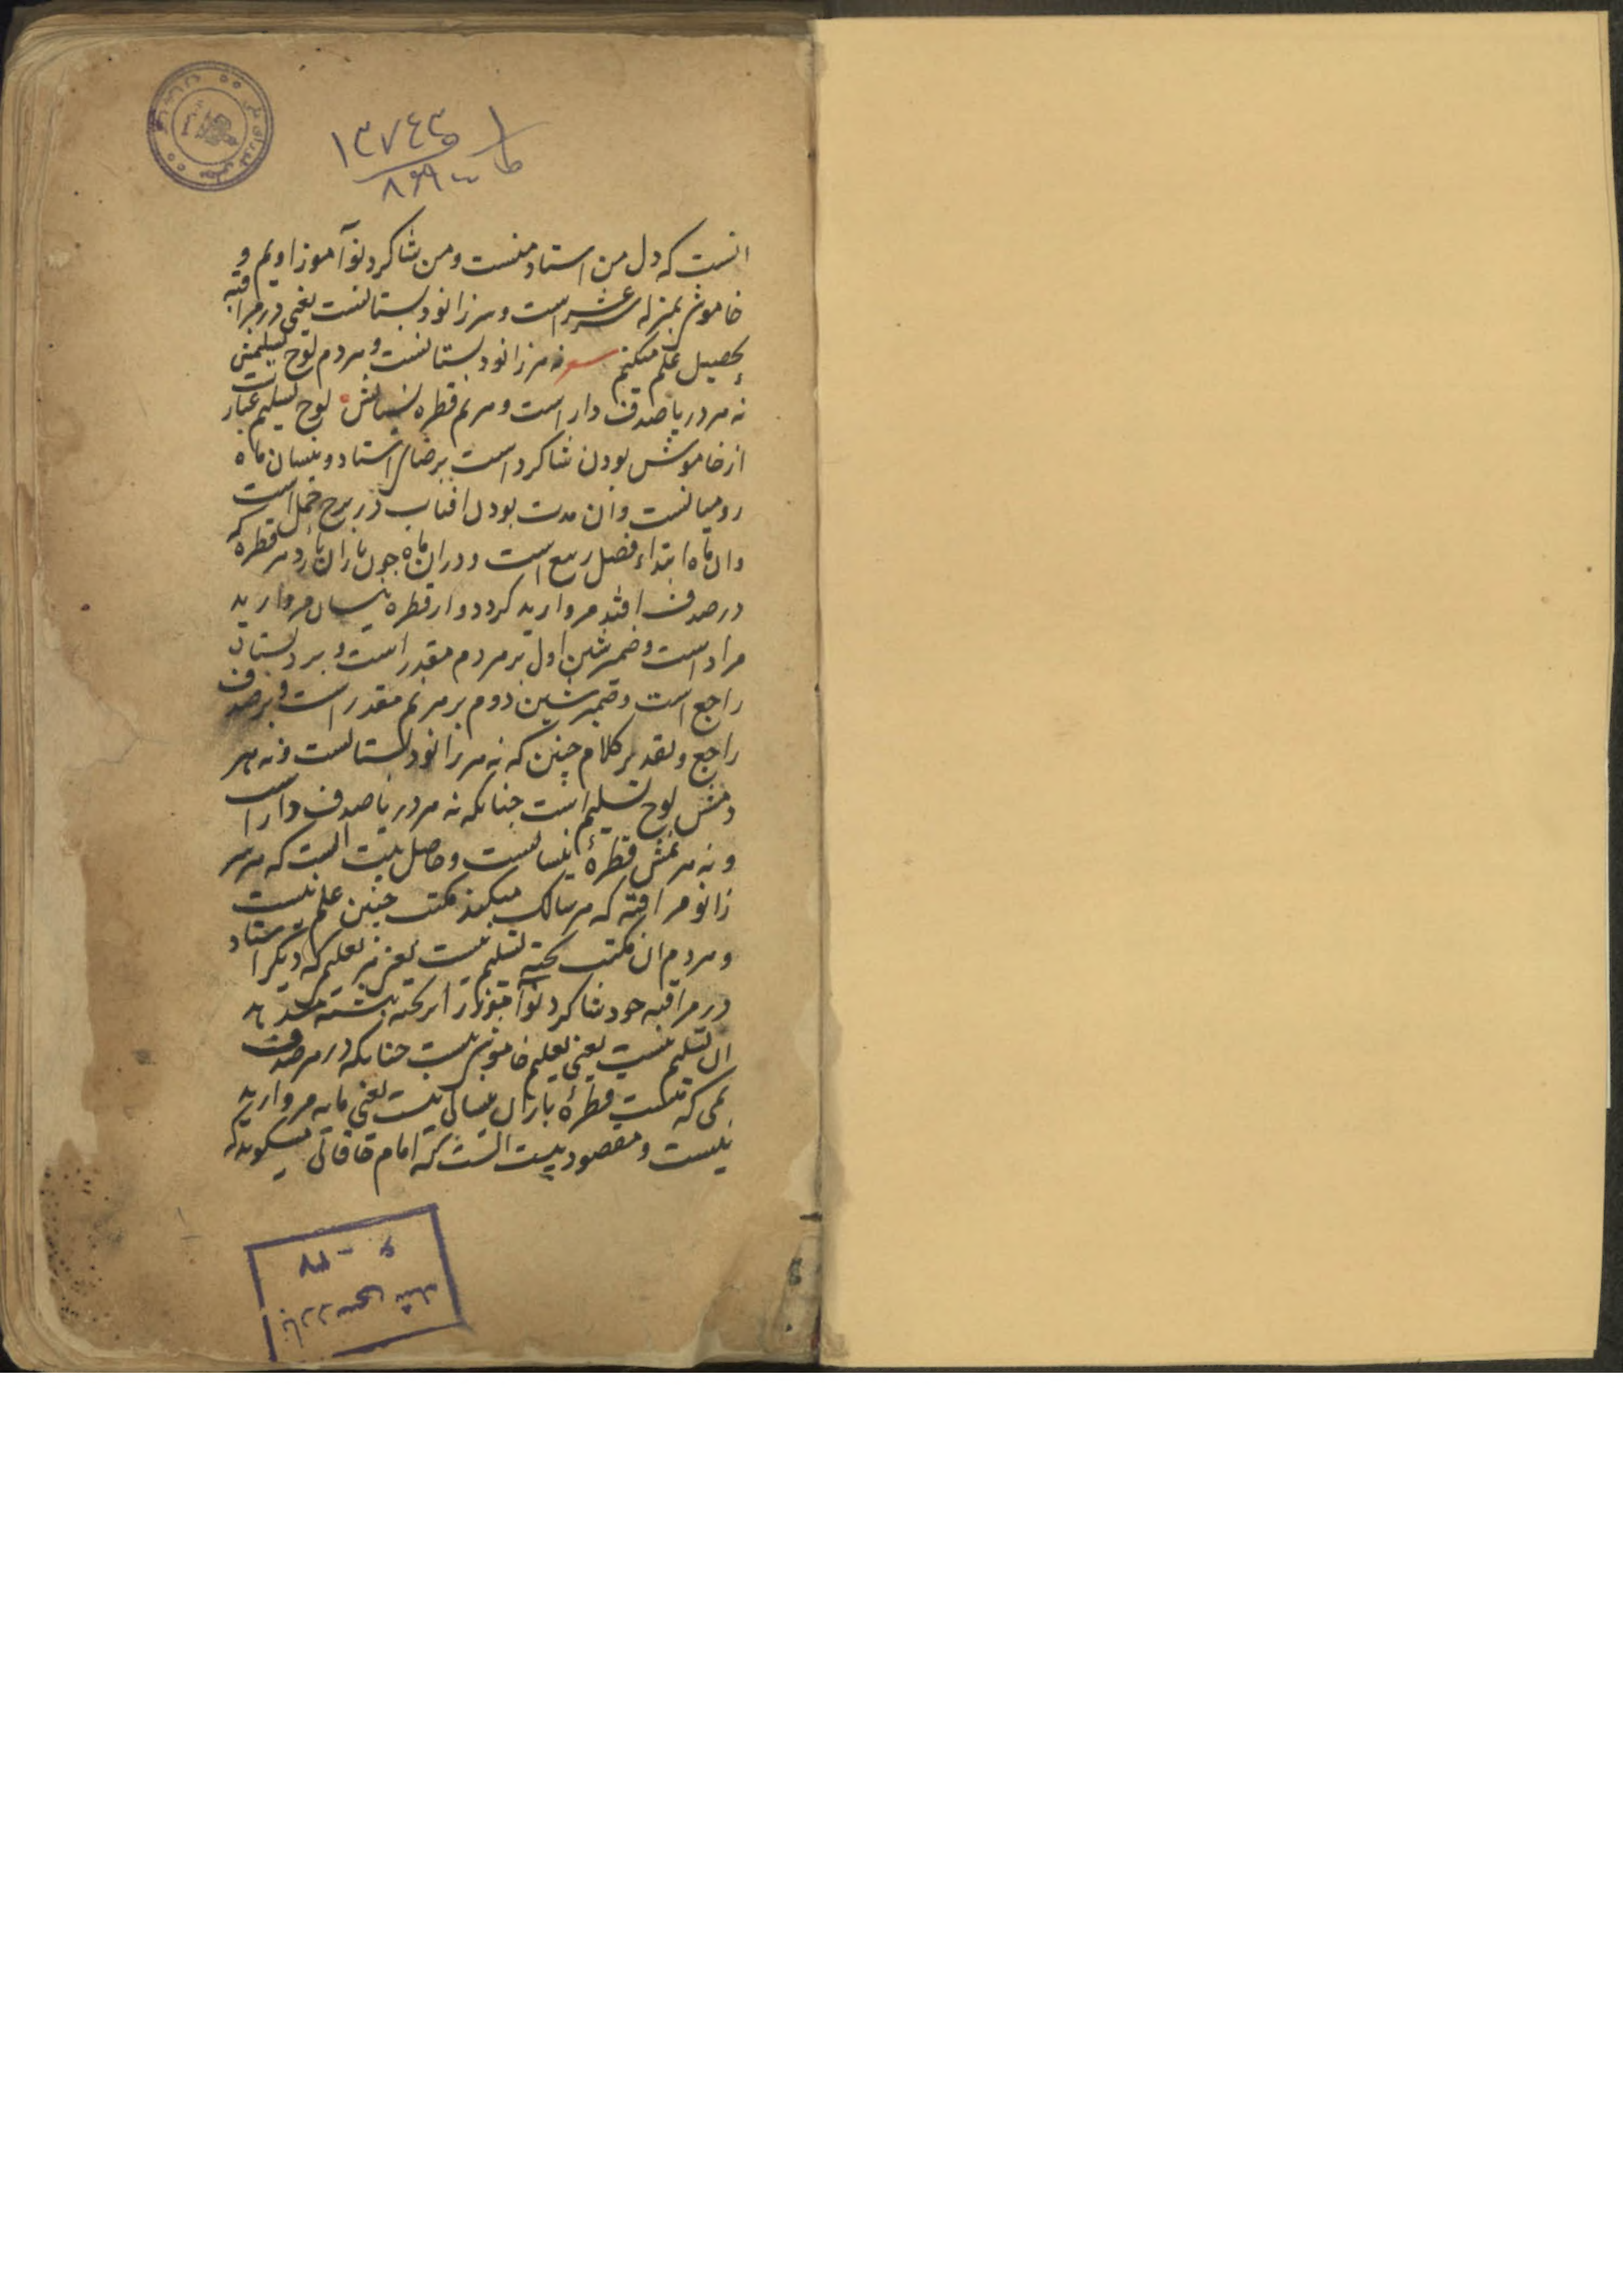 ۱۳۷۴۳
انست که دل من استاد منست و من شاکرد نوآموز اویم و
خاموشی بمنزله سر عشر است و سر زانو دبستانست یعنی در مراقبه
تحصیل علم میکنم نه هر زانو دبستانست و هر دم لوح تسلیمش
نه هر دریا صدف دار است و هر نم قطره نیسانش لوح تسلیم عبارت
از خاموش بودن شاکرد است برضای استاد و نیسان ماه
رومیانست و ان مدت بودن افتاب در برج حمل است
و ان ماه ابتداء فصل ربیع است و دران ماه چون باران بارد هر قطره که
در صدف افتد مروارید کردد و از قطره نیسان مروارید
مراد است و ضمیر شین اول بر هر دم مقدر است و بر دبستان
راجع است و ضمیر شین دوم بر هر نم مقدر است و بر صدف
راجع و تقدیر کلام چنین که نه هر زانو دبستانست و نه هر
دمش لوح تسلیم است چنانکه نه هر دریا صدف دار است
و نه هر نمش قطرهٔ نیسانست و حاصل بیت انست که هر سر
زانو مراقبه که هر سالک میکند مکتب چنین علم نیست
و هر دم ان مکتب تخته تسلیم نیست یعنی هر تعلیم که دیگر استاد
در مراقبه خود شاکرد نوآموز را بر تخته نبشته
ان تسلیم نیست یعنی تعلیم خاموشی نیست چنانکه در هر صدف
نمی که نیست قطرهٔ باران نیسانی نیست یعنی مایه مروارید
نیست و مقصود بیت انست که امام خاقانی میکوید که
بازرسی شد
۳۷ - ۶